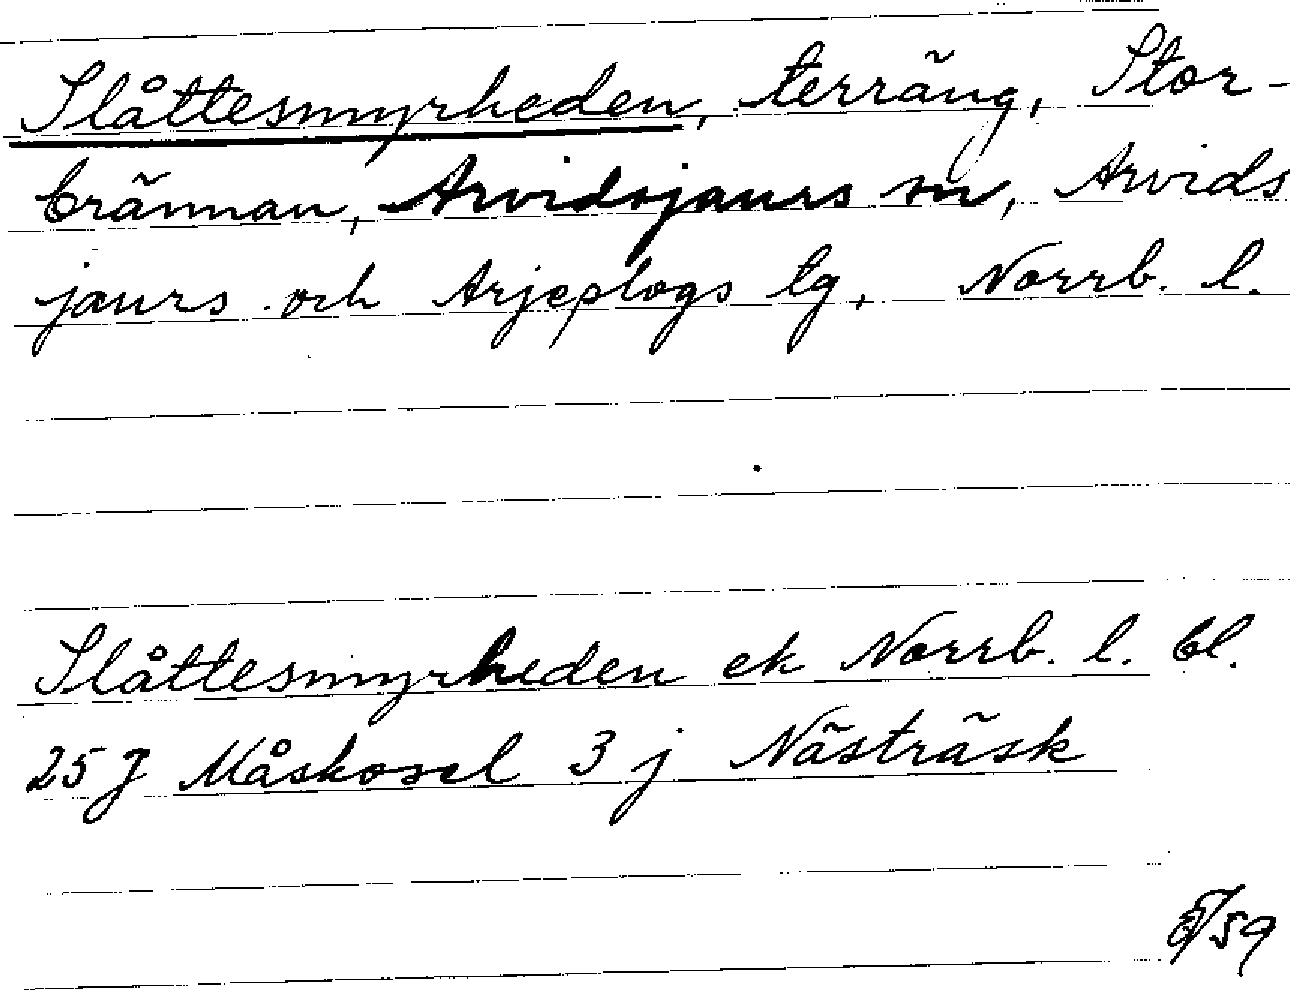 Slåttesmyrheden, terräng, Stor-
brännan, Arvidsjaurs sn, Arvids
jaurs och Arjeplogs tg, Norrb. l.
Slåttesmyrheden ek Norrb. l. bl.
25 J Måskosel 3 j Nästräsk
/59